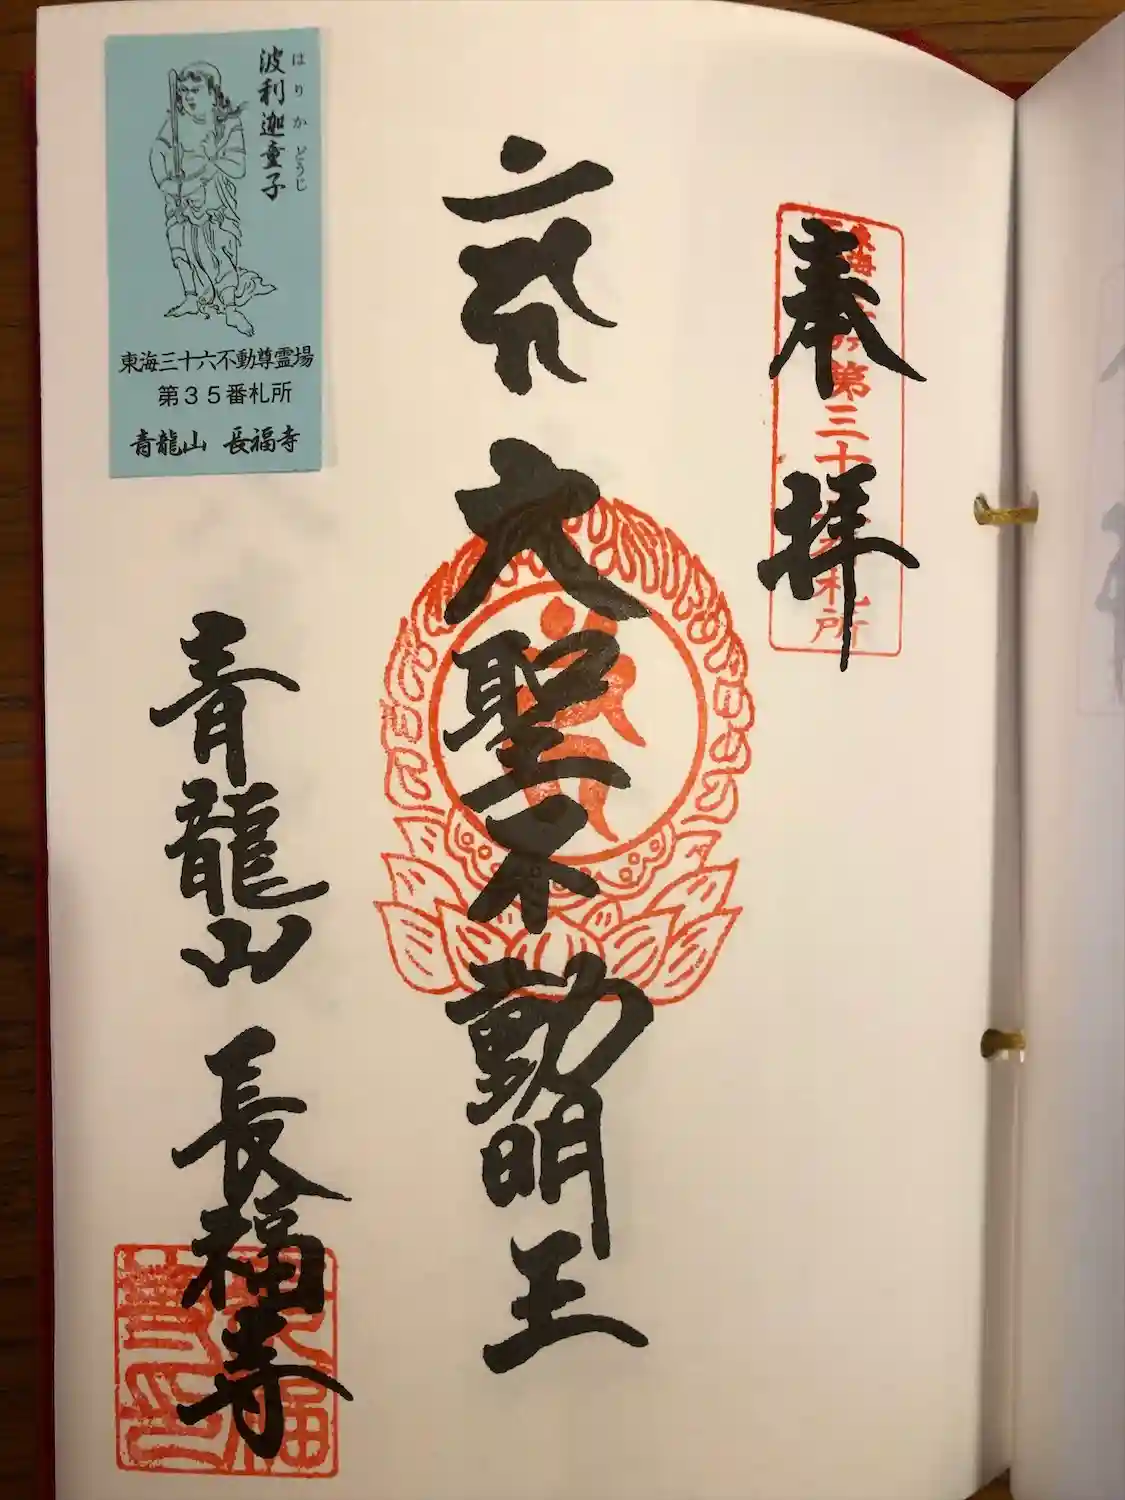 奉拝
大聖不動明王
青龍山 長福寺
波利迦童子
はりかどうじ
東海三十六不動尊霊場
第35番札所
青龍山 長福寺